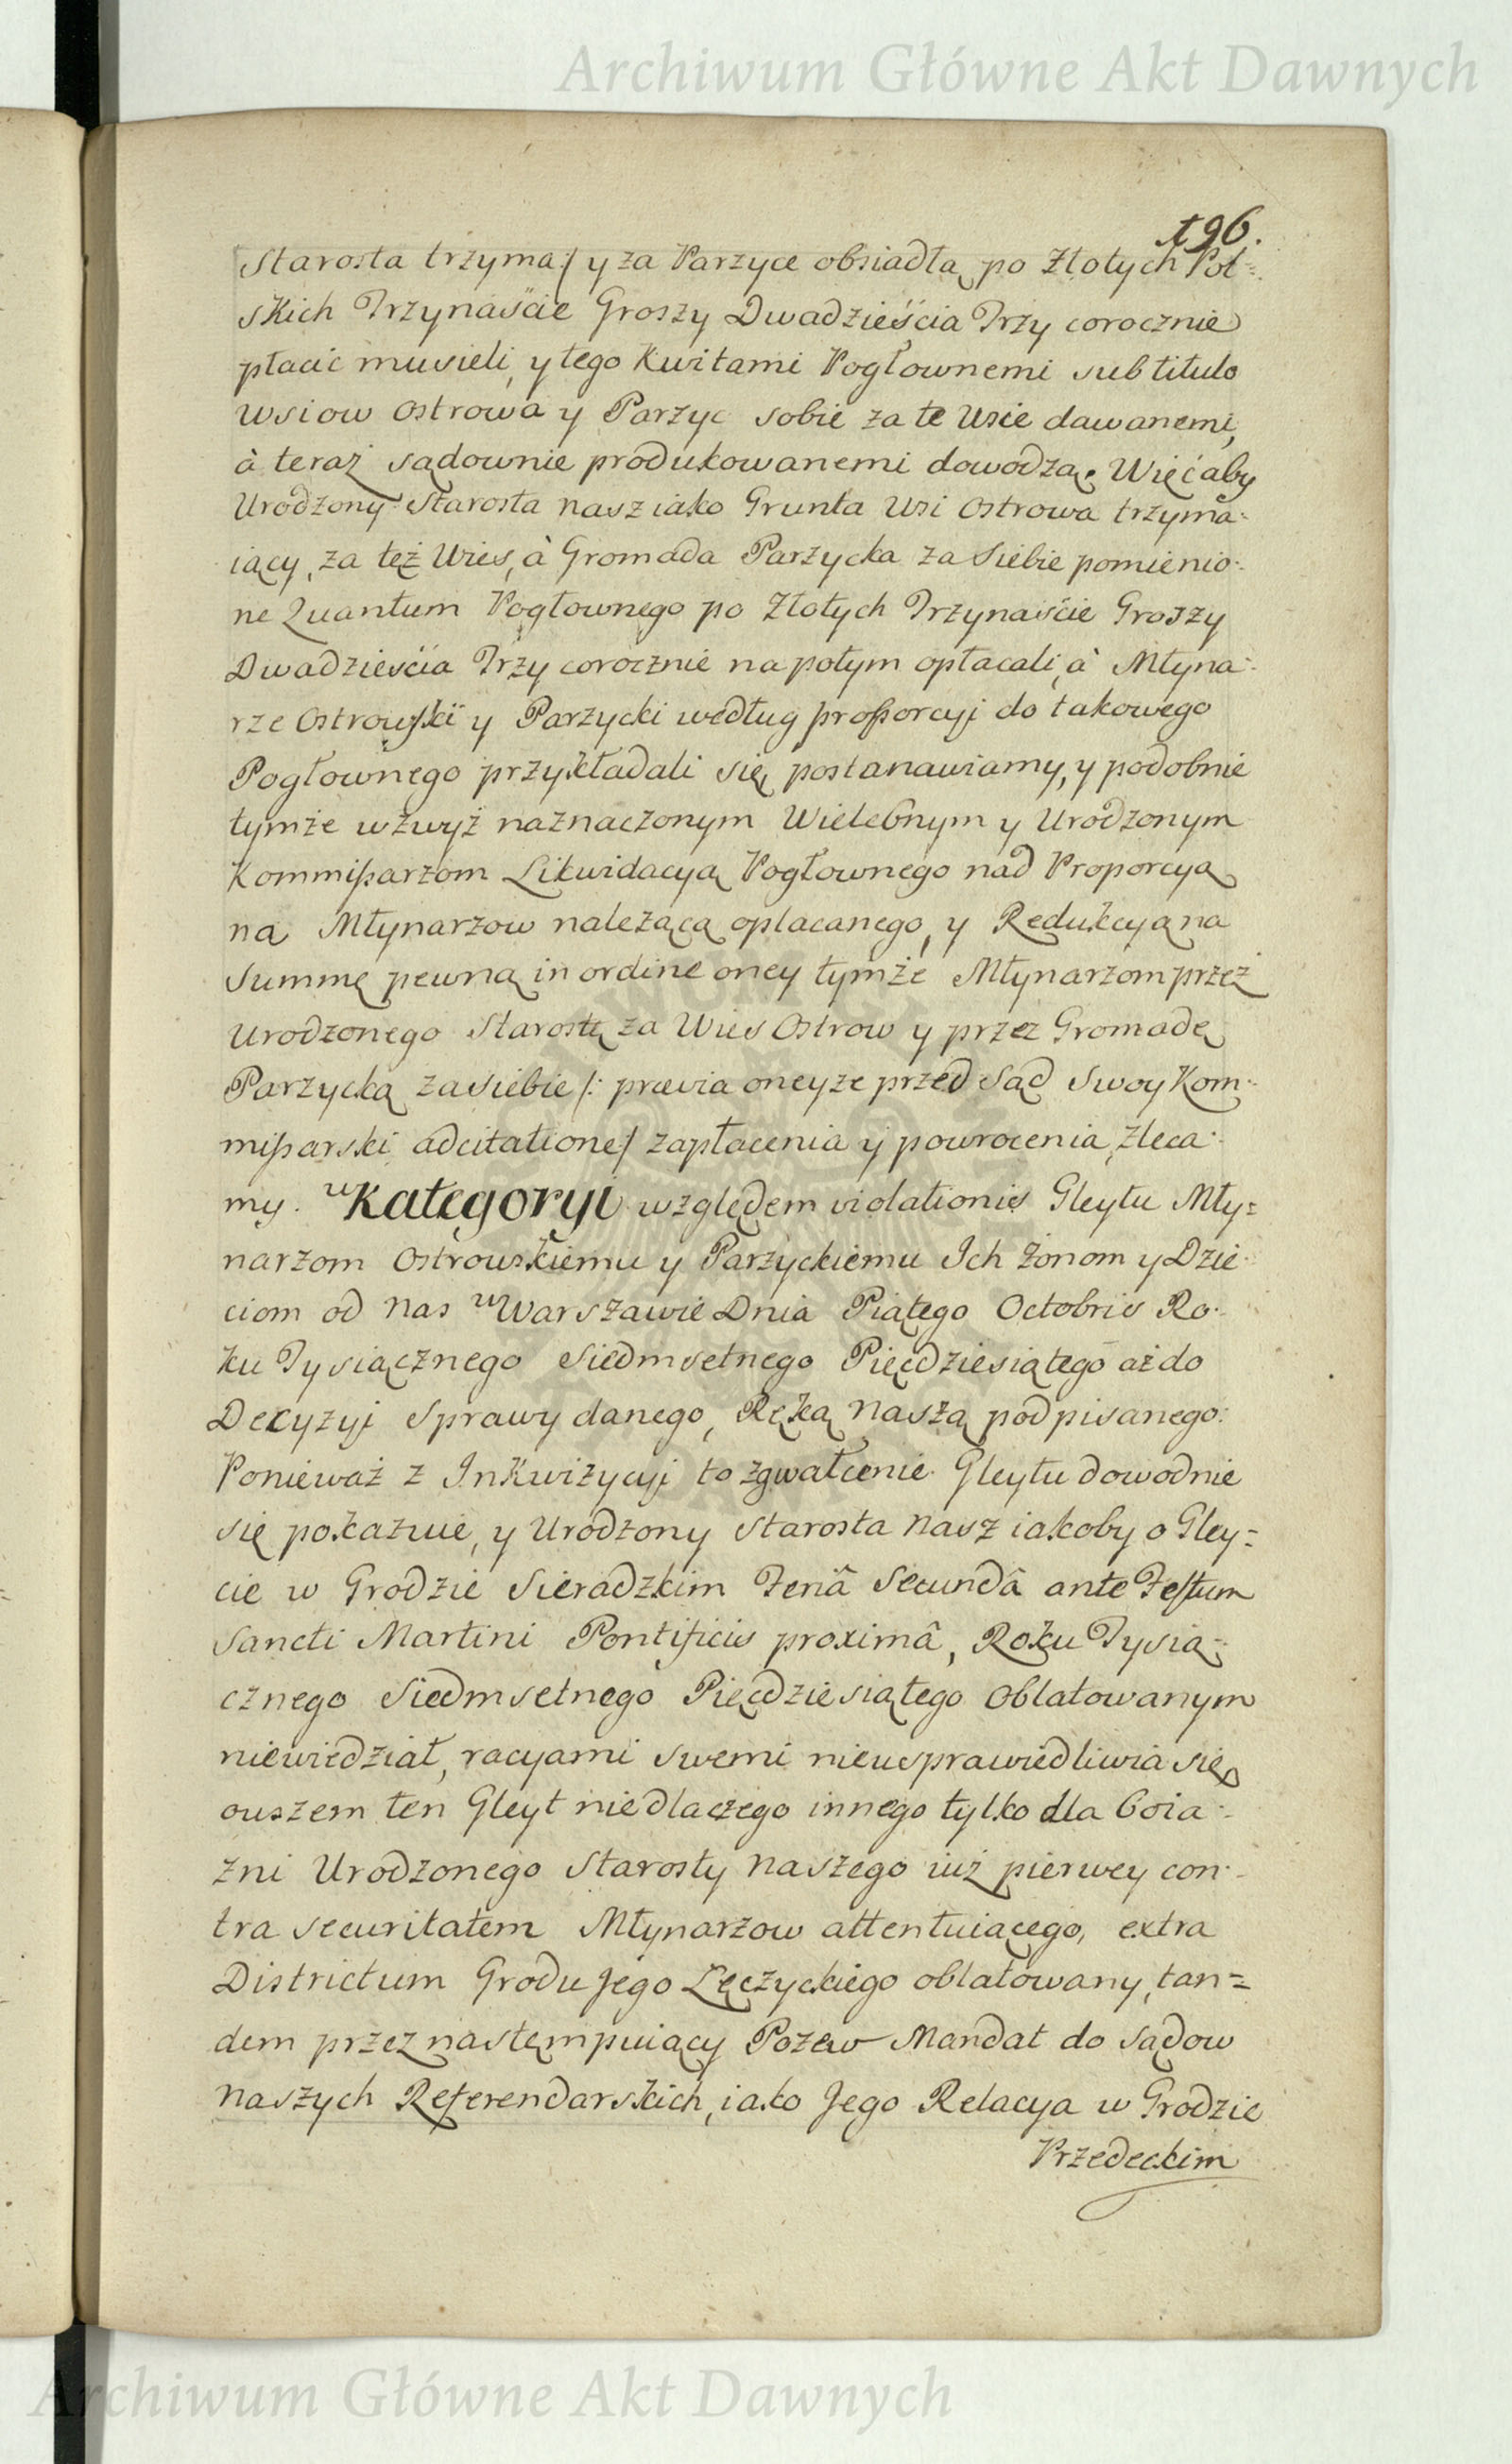 Archiwum Główne Akt Dawnych
196.
Starosta trzyma/ y za Parzyce obsiadłą po Złotych Pol=
skich Trzynaście Groszy Dwadzieścia Trzy corocznie
płacić musieli, y tego Kwitami Pogłownemi sub titulo
Wsiow Ostrowa y Parzyc sobie za te Wsie dawanemi,
à teraz sądownie produkowanemi dowodzą. Więc aby
Urodzony Starosta nasz iako Grunta Wsi Ostrowa trzyma=
iący, za też Wies, à Gromada Parzycka za Siebie pomienio=
ne Quantum Pogłownego po Złotych Trzynaście Groszy
Dwadzieścia Trzy corocznie na potym opłacali, à Młyna=
rze Ostrowski y Parzycki według proporcyi do takowego
Pogłownego przykładali się, postanawiamy, y podobnie
tymże wzwyż naznaczonym Wielebnym y Urodzonym
Kommissarzom Likwidacyą Pogłownego nad Proporcyą
na Młynarzow należącą opłacanego, y Redukcyą na
Summę pewną in ordine oney tymże Młynarzom przez
Urodzonego Starostę za Wies Ostrow y przez Gromadę
Parzycką za siebie /: prævia oneyże przed Sąd Swoy Kom=
missarski adcitatione/ zapłacenia y powrocenia, zleca=
my. w Kategoryi względem violationis Gleytu Mły=
narzom Ostrowskiemu y Parzyckiemu Ich Żonom y Dzie=
ciom od nas w Warszawie Dnia Piątego Octobris Ro=
ku Tysiącznego Siedmsetnego Pięcdziesiątego aż do
Decyzyi Sprawy danego, Ręką naszą podpisanego:
Ponieważ z Inkwizycyi to zgwałcenie Gleytu dowodnie
się pokazuie, y Urodzony Starosta nasz iakoby o Gley=
cie w Grodzie Sieradzkim Feriâ Secundâ ante Festum
Sancti Martini Pontificis proximâ, Roku Tysią=
cznego Siedmsetnego Pięcdziesiątego oblatowanym
niewiedział, racyami swemi nieusprawiedliwia się,
owszem ten Gleyt nie dla czego innego tylko dla boia=
zni Urodzonego Starosty naszego iuż pierwey con=
tra securitatem Młynarzow attentuiącego, extra
Districtum Grodu Jego Łęczyckiego oblatowany, tan=
dem przez następuiący Pozew Mandat do Sądow
naszych Referendarskich, iako Jego Relacya w Grodzie
Przedeckim
Archiwum Główne Akt Dawnych